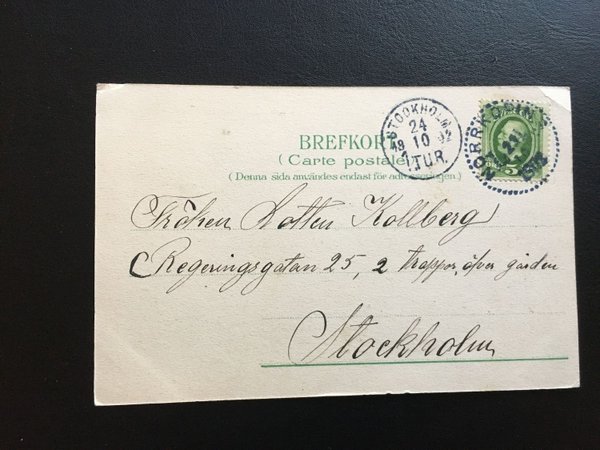 BREFKORT
(Carte postale)
(Denna sida användes endast för adresseringen.)
STOCKHOLM
24
19 10 02
1.TUR.
NORRKÖPING
5
Fröken Lotten Kollberg
Regeringsgatan 25, 2 trappor, öfver gården
Stockholm